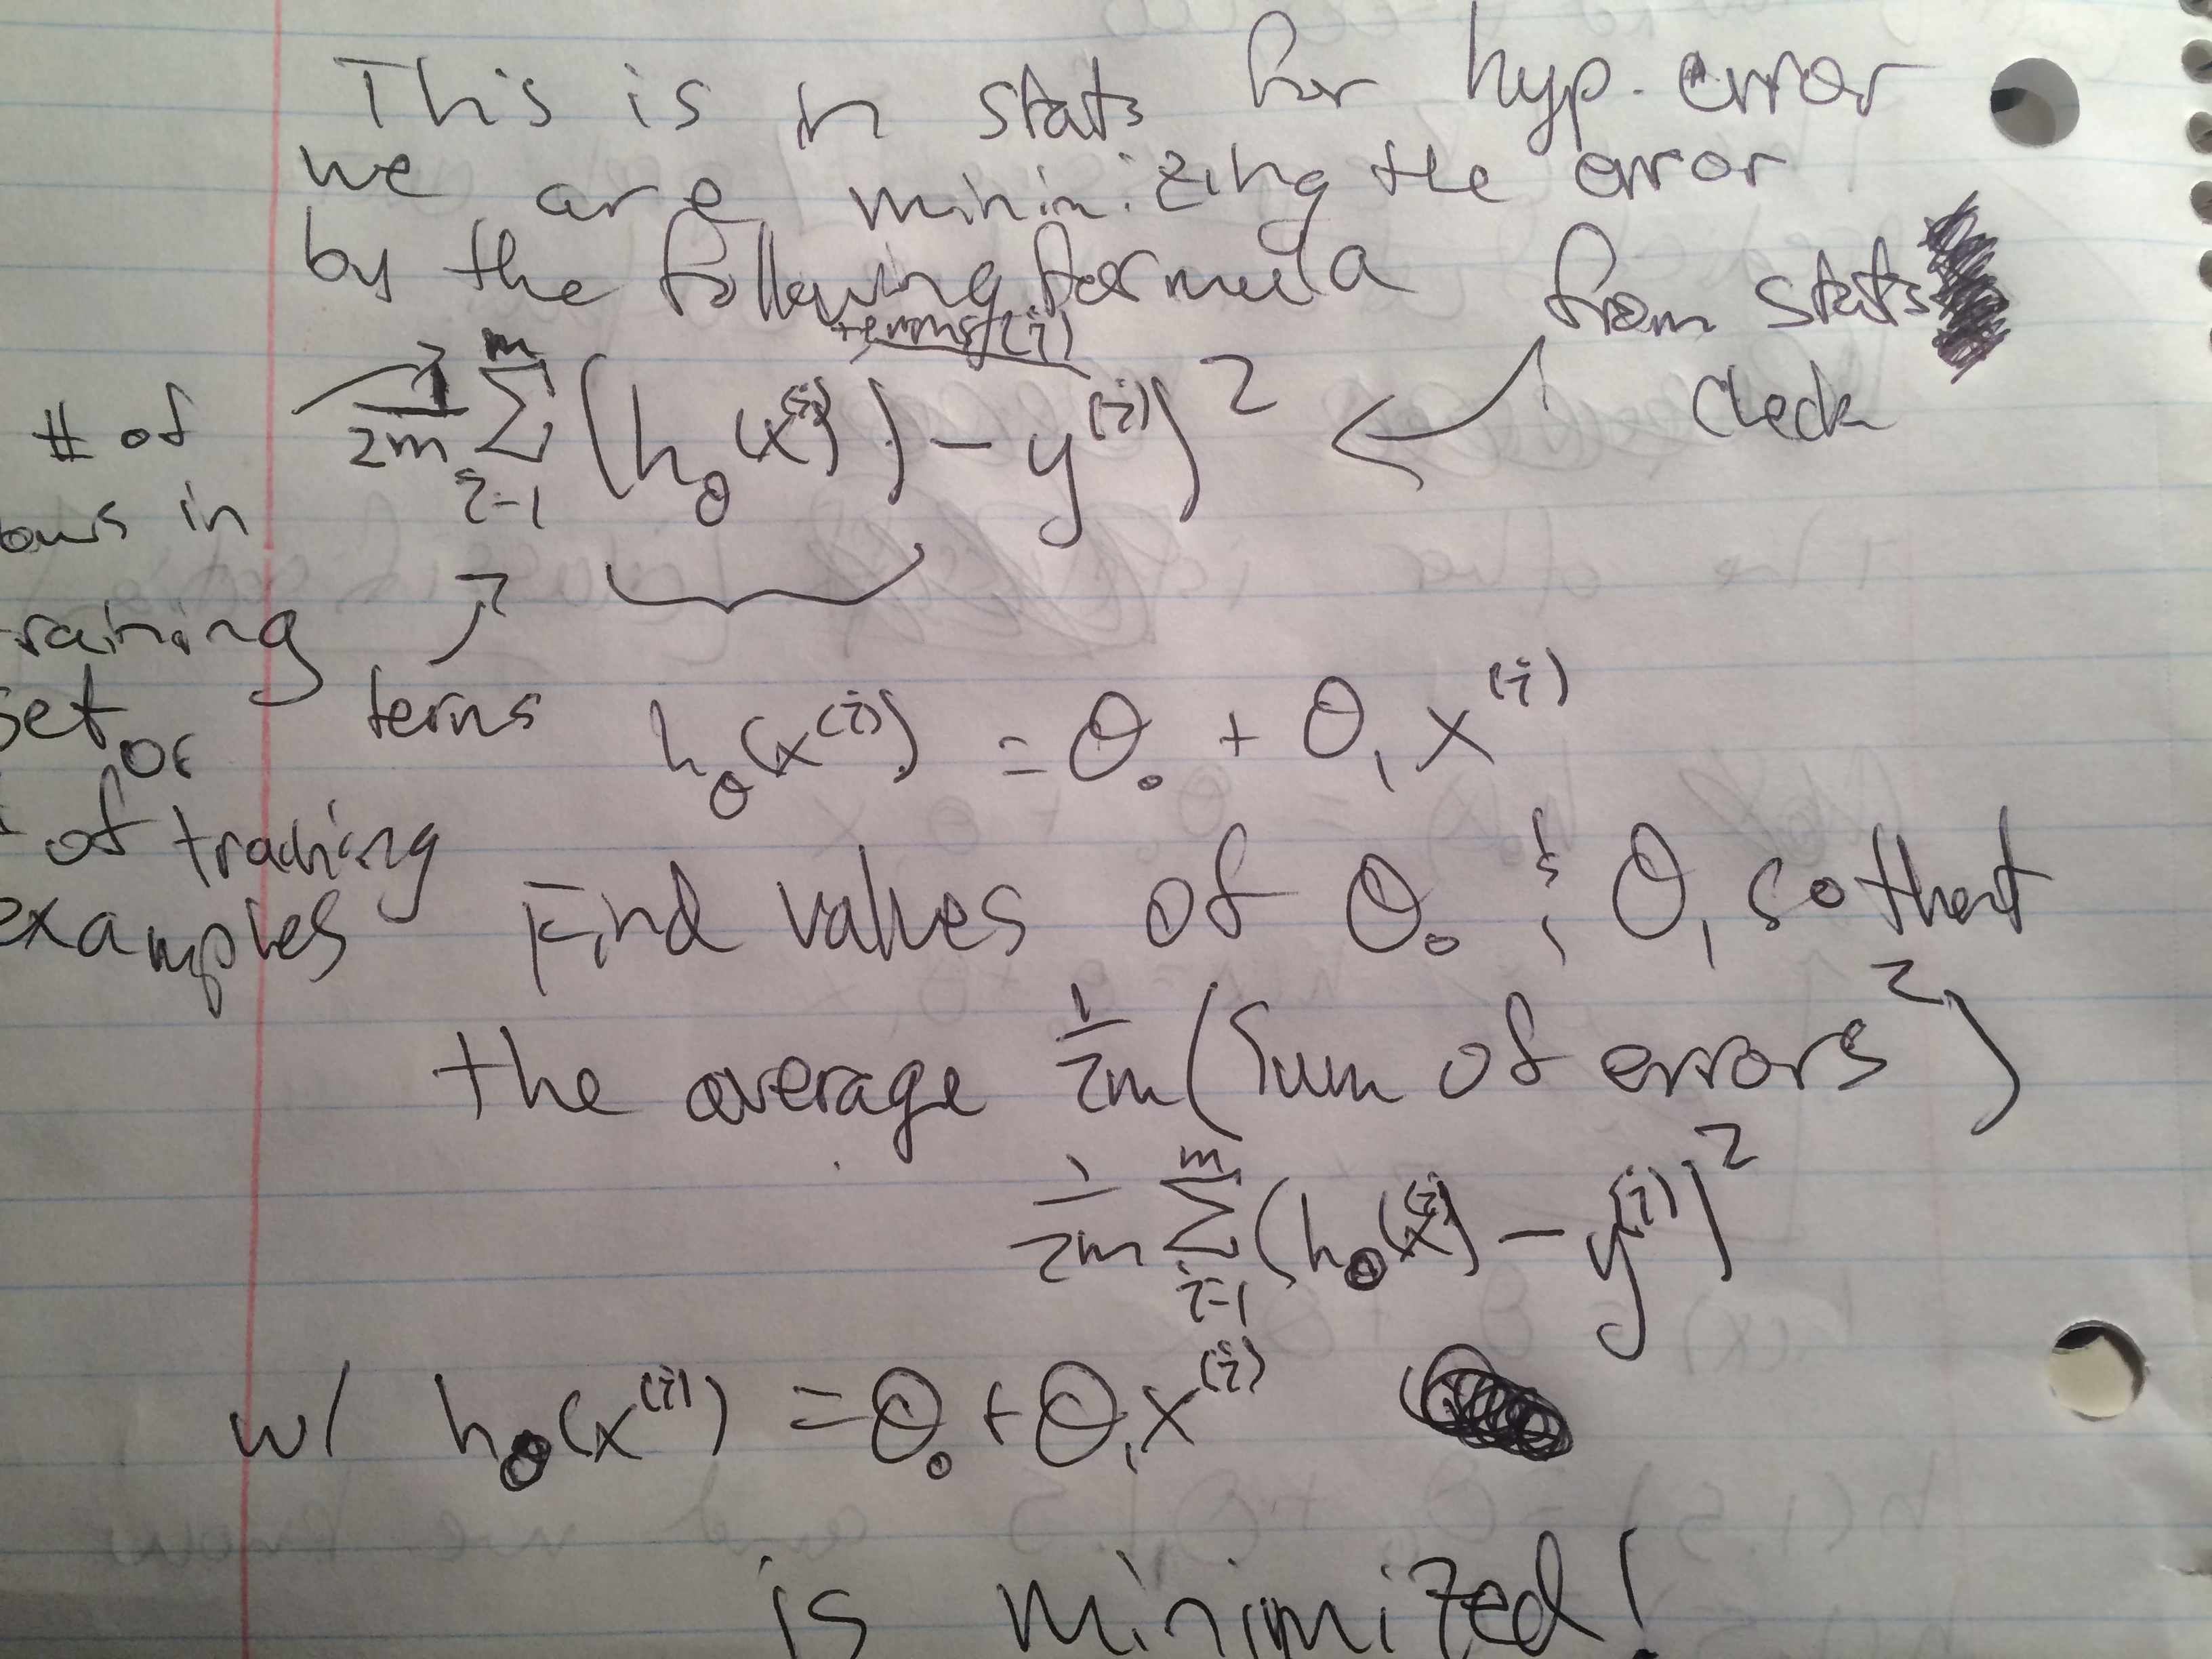 This is in stats for hyp. error
we are minimizing the error
by the following formula
terms (i)
from stats
check
1/2m Σ_{i=1}^{m} (h_θ(x^(i)) - y^(i))^2
# of
ows in
raining
set or
of training
examples
terms
h_θ(x^(i)) = θ_0 + θ_1 x^(i)
Find values of θ_0 & θ_1 so that
the average 1/2m (Sum of errors^2)
1/2m Σ_{i=1}^{m} (h_θ(x^(i)) - y^(i))^2
w/ h_θ(x^(i)) = θ_0 + θ_1 x^(i)
is minimized!